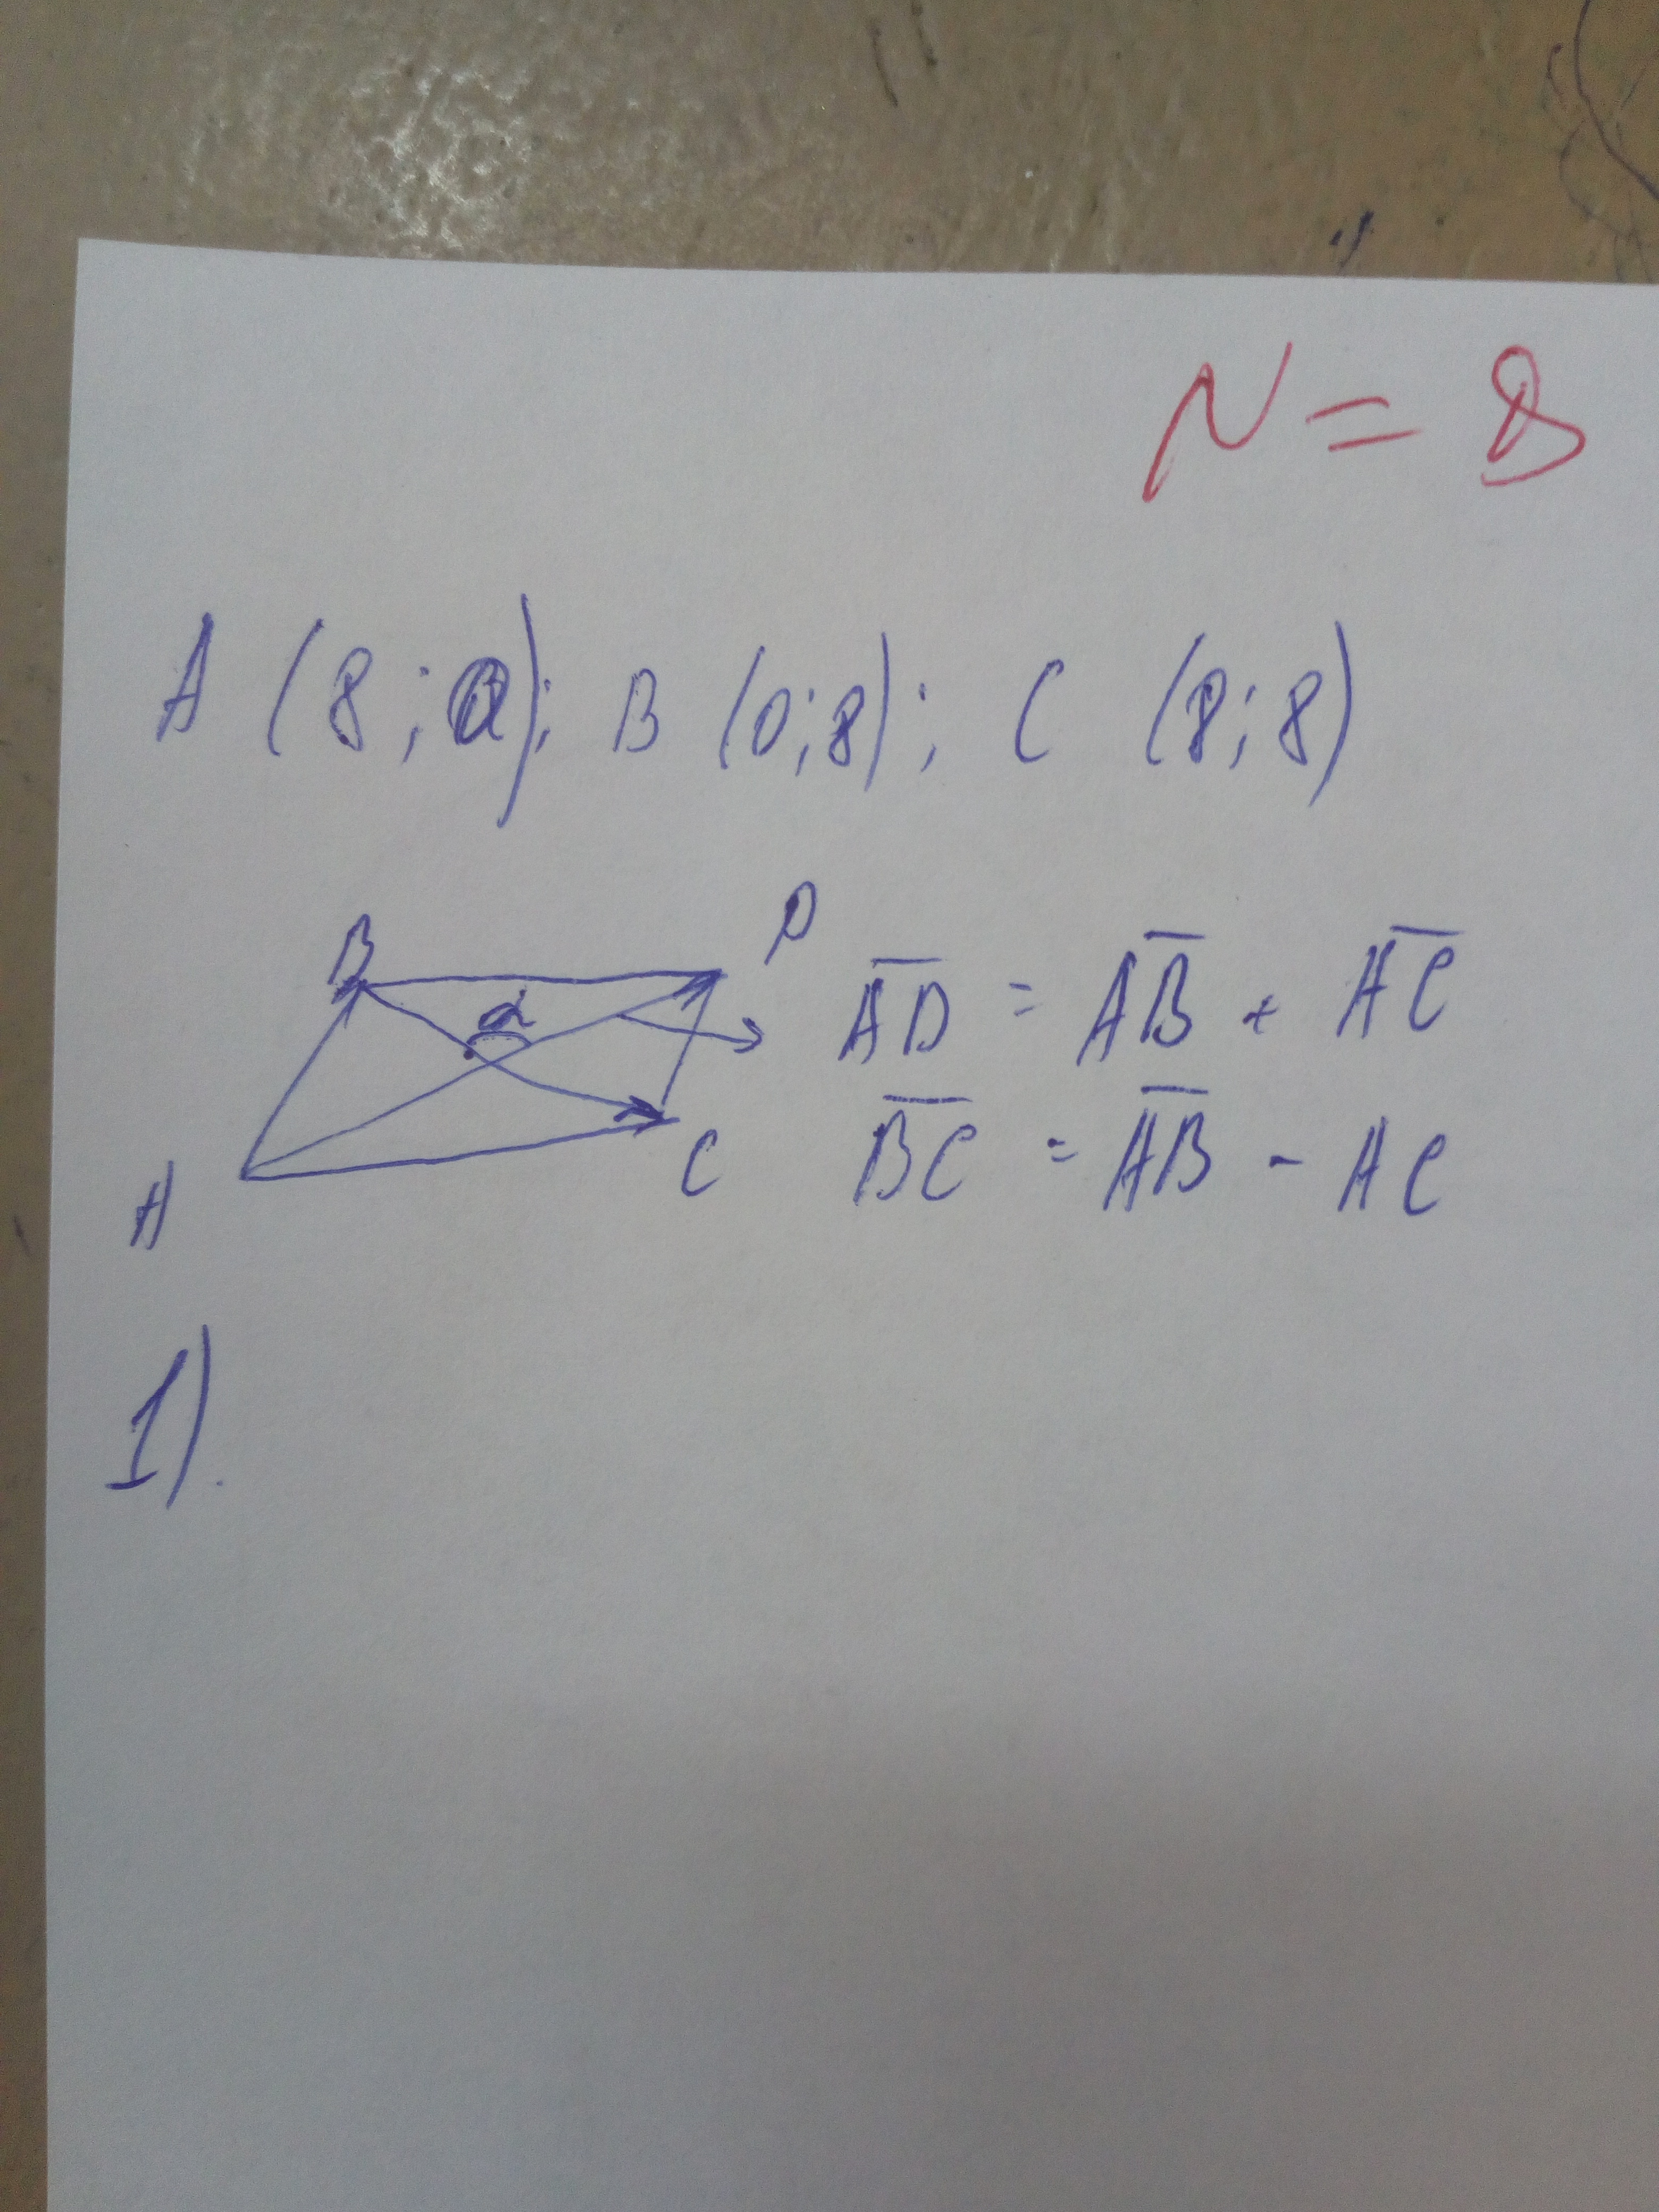 N = 8
A (8; 0); B (0; 8); C (8; 8)
B D
α
A̅D̅ = A̅B̅ + A̅C̅
B̅C̅ = A̅B̅ - AC
A C
1).